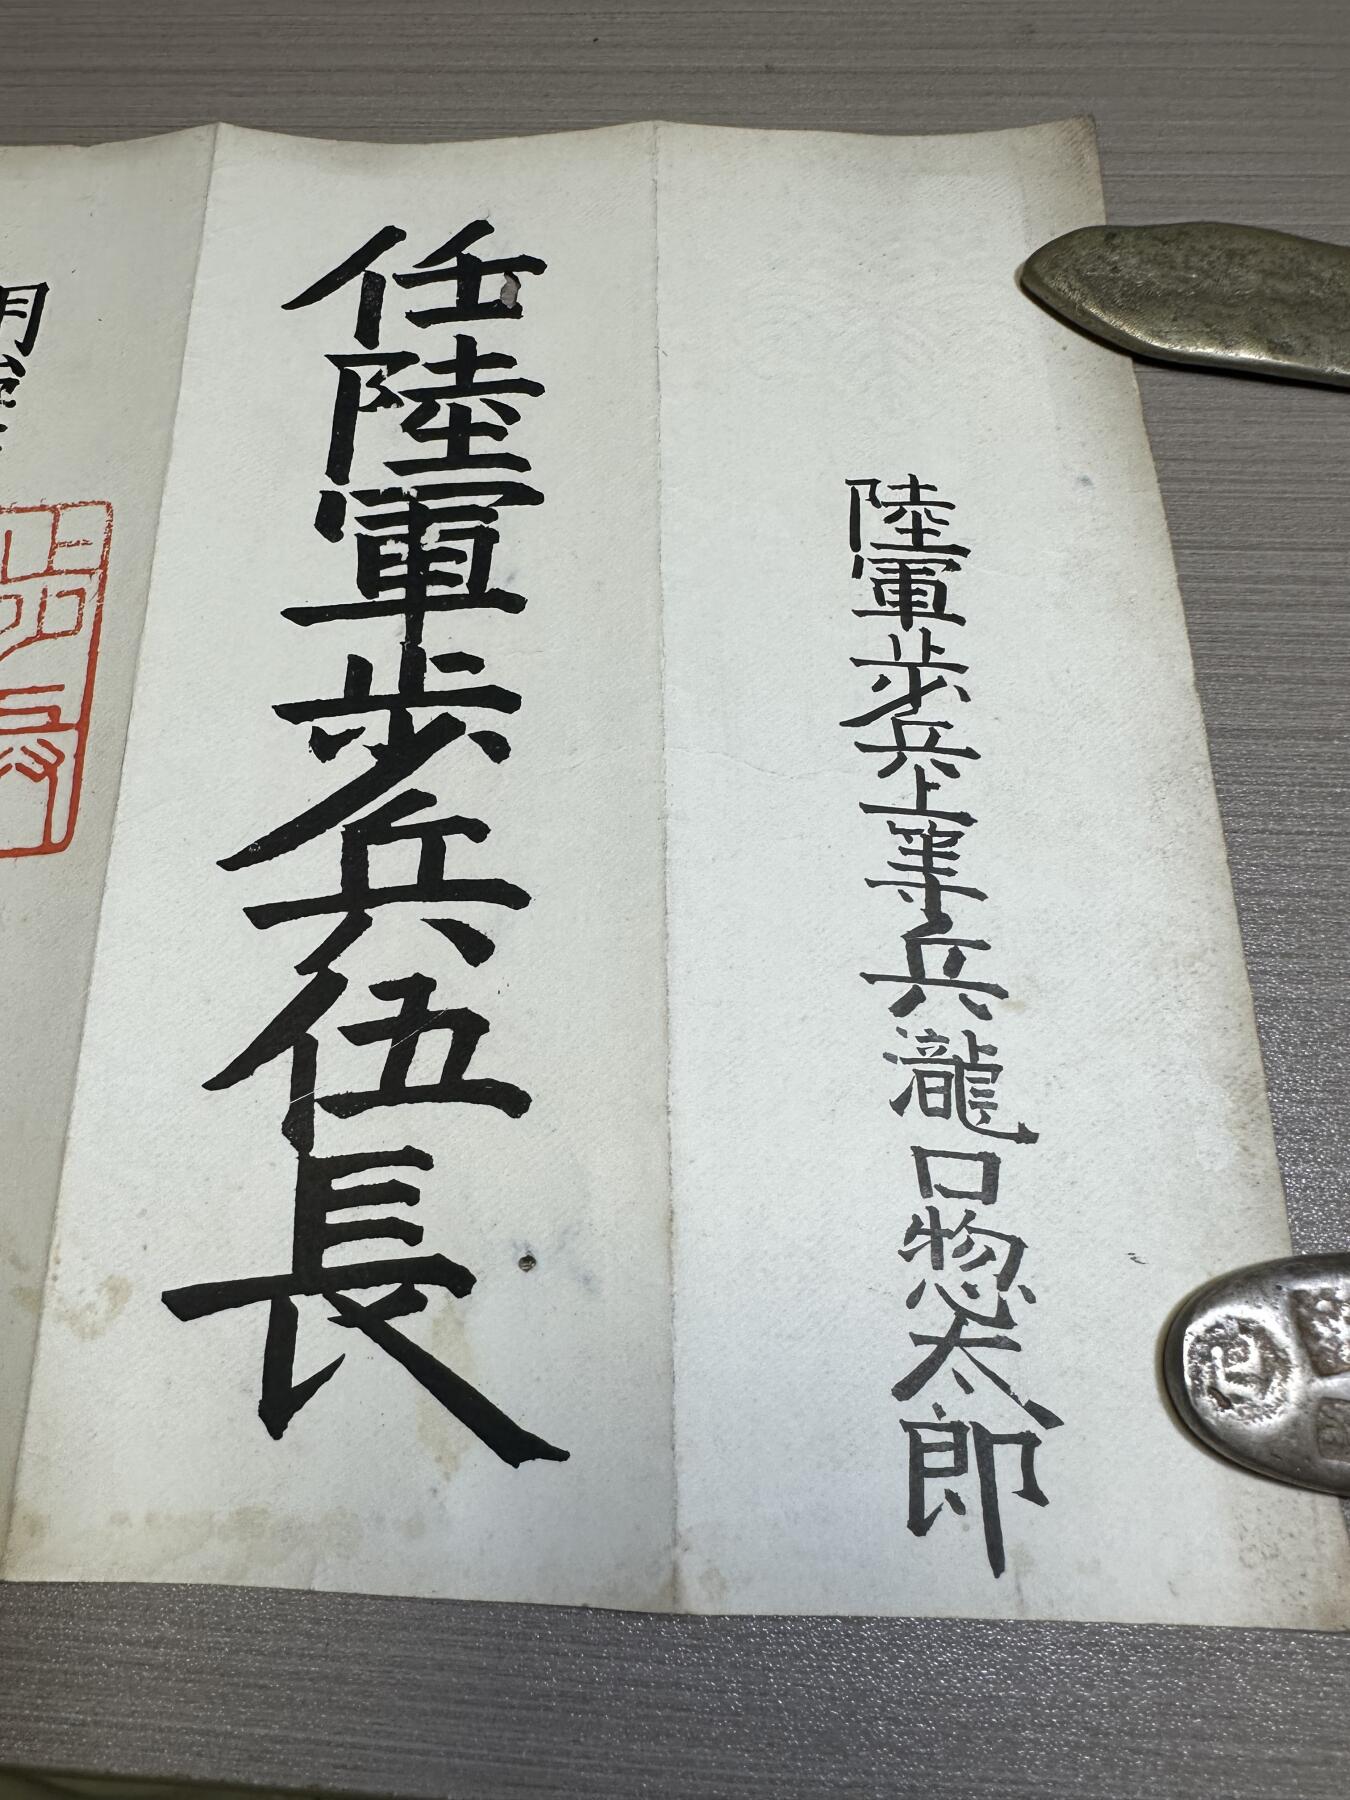 陸軍歩兵上等兵瀧口惣太郎
任陸軍歩兵伍長
明治